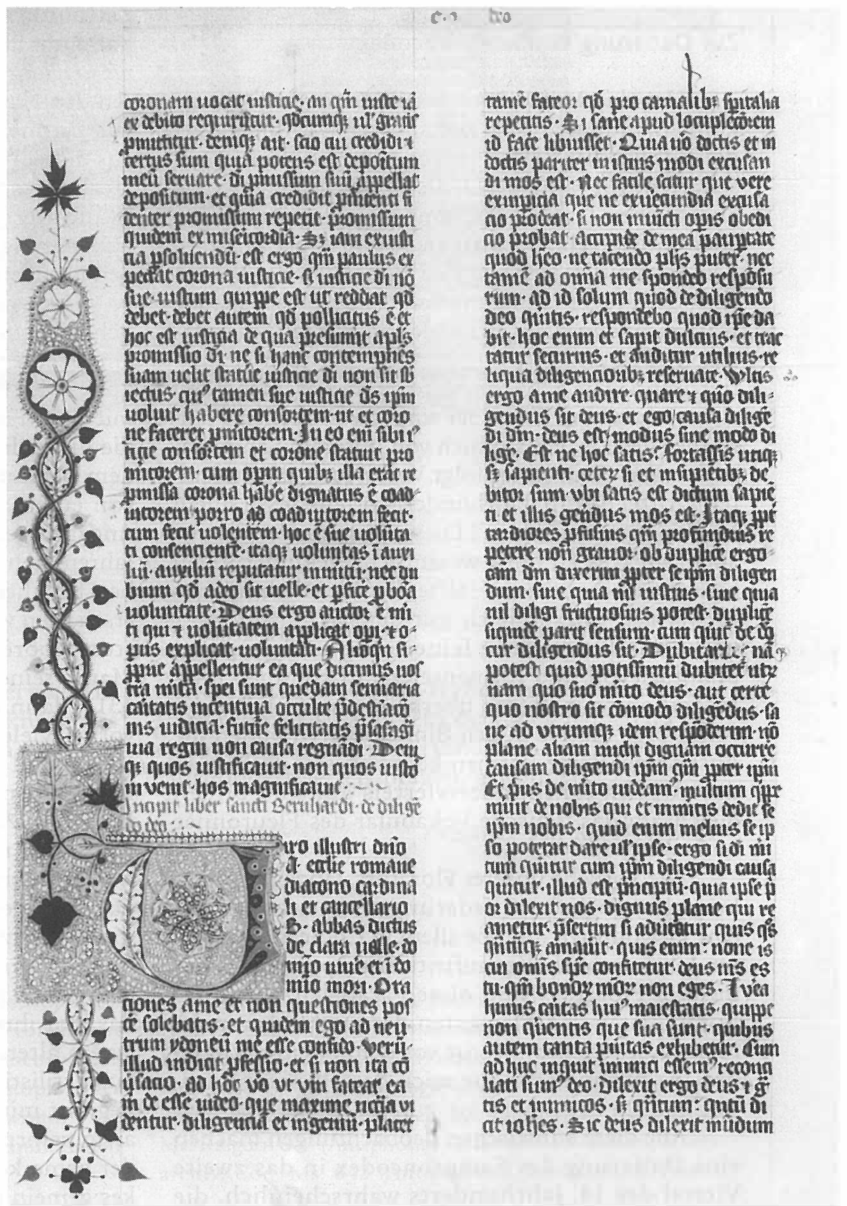 coronam uocat iusticie· an qm̄ iuste iā
ex debito requiritur· qdcumqȝ ul' gratis
ꝓmittitur· deniqȝ ait· scio cui credidi ⁊
certus sum quia potens est depositum
meū seruare· di ꝓmissum suū appellat
depositum· et quia credidit ꝓmittenti fi
denter promissum repetit· promissum
quidem ex misericordia· Sȝ iam ex iusti
cia ꝑsoluendū· est ergo qm̄ paulus ex
pectat corona iusticie· sȝ iusticie di nō
sue· iustum quippe est ut reddat qd
debet· debet autem qd pollicitus ē et
hoc est iusticia de qua presumit apls
promissio di· ne si hanc contempnēs
suam uelit statue iusticie di non sit sb
iectus· cui9 tamen sue iusticie ds ipm
voluit habere consortem· ut et coro
ne faceret ꝓmitorem· In eo em̄ sibi i9
ticie consortem et corone statuit pro
mitorem· cum opm̄ quibȝ illa erat re
ꝓmissa corona habe dignatus ē coad
iutorem· porro ad coadiutorem fecit·
cum fecit uolentem· hoc ē sue volūta
ti consencientē· itaqȝ voluntas ī auxi
liū· auxiliū reputatur in mitū· nec du
bium qd a deo sit uelle· et ꝑfice ꝑ bōa
voluntate· Deus ergo auctor ē mi
ti qui ⁊ volūtatem applicat opi· ⁊ o·
pus explicat voluntati· Alioqn si·
ꝓprie appellentur ea que dicimus nos
tra mita· spei sunt quedam seminaria
caritatis incentiua occulte p̄destiacō
nis iudicia· future felicitatis p̄sagia
uia regni non causa regnādi· Deni
qȝ quos iustificauit· non quos iusto
inuenit· hos magnificauit·
Incipit liber sancti Bernhardi· de dilige
do deo·
iro illustri dn̄o
A· ecclie romane
diacono cardina
li et cancellario
B· abbas dictus
de clara ualle· do
mīo uiuē et ī do
mīo mori· Ora
ciones a me et non questiones pos
cē solebatis· et quidem ego ad neu
trum ydoneū me esse confido· verū·
illud indicit ꝓfessio· et si non ita cō
ūsacio· ad hoc vō ut vm̄ fatear ea
m̄ de esse uideo· que maxime nccīa vi
dentur· diligencia et ingeniū· placet
tamē fateor qd pro carnalibȝ spūalia
repetitis· Si sane apud locupleciorem
id facē libuisset· Quia uō doctis et in
doctis pariter in istius modi excusan
di mos est· Nec facile scitur que vere
ex inpicia que ne ex uecundia excusa
cio prodeat· si non iniūcti opis obedi
cio probat· accipite de mea paupertate
quod habeo· ne tacendo phs puter· nec
tamē ad omīa me spondeo respōsu
rum· ad id solum quod de diligendo
deo queritis· respondebo quod ipse da
bit· hoc enim et sapit dulcius· et trac
tatur securius· et auditur utilius· re
liqua diligencioribȝ reseruate· Vltis
ergo a me audire· quare ⁊ quō dili·
gendus sit deus· et ego· causa diligē
di dm̄· deus est· modus sine modo di
lige· Est ne hoc satis· fortassis utiqȝ
sȝ sapienti· ceterȝ si et insipiētibȝ de
bitor sum· vbi satis est dictum sapiē
ti et illis gerēdus mos est· Itaqȝ ꝓpt
tardiores ꝓfusius qm̄ profundius re
petere non grauor· ob duplicē ergo·
cām dm̄ dixerim ꝓpter seipm̄ diligen
dum· siue quia nil iustius· siue quia
nil diligi fructuosius potest· duplicē
siquidē parit sensum· cum querit' de do
cur diligendus sit· Dubitari nā
potest quid potissimū dubitet' utȝ
nam quo suo mito deus· aut certe
quo nostro sit cōmodo diligēdus· sa
ne ad vtrumqȝ idem respōderim· nō
plane aliam michi dignam occurre
causam diligendi ipm̄ qm̄ ꝓpter ipm̄
Et prius de mito uideam· multum qppe
miuit de nobis qui et inmitis dedit se
ipm̄ nobis· quid enim melius seip
so poterat dare ul' ipse· ergo si di mi
tum queritur cum ipm̄ diligendi causa
queritur· illud est ꝓncipiū· quia ipse p
or dilexit nos· dignus plane qui re
ametur· p̄sertim si aduertatur quis qs
qntūqȝ amauit· quis enim· none is
cui omīs spc confitetur· deus ms es
tu· qm̄ bonorȝ meorȝ non eges· I vera
huius caritas hui9 maiestatis· quippe
non querentis que sua sunt· quibus
autem tanta puritas exhibetur· Cum
ad huc inquit inimici essem9 reconci
liati sum9 deo· dilexit ergo deus ⁊ g
tis et inimicos· sȝ qntum· qntū di
cit iohes· Sic deus dilexit mūdum